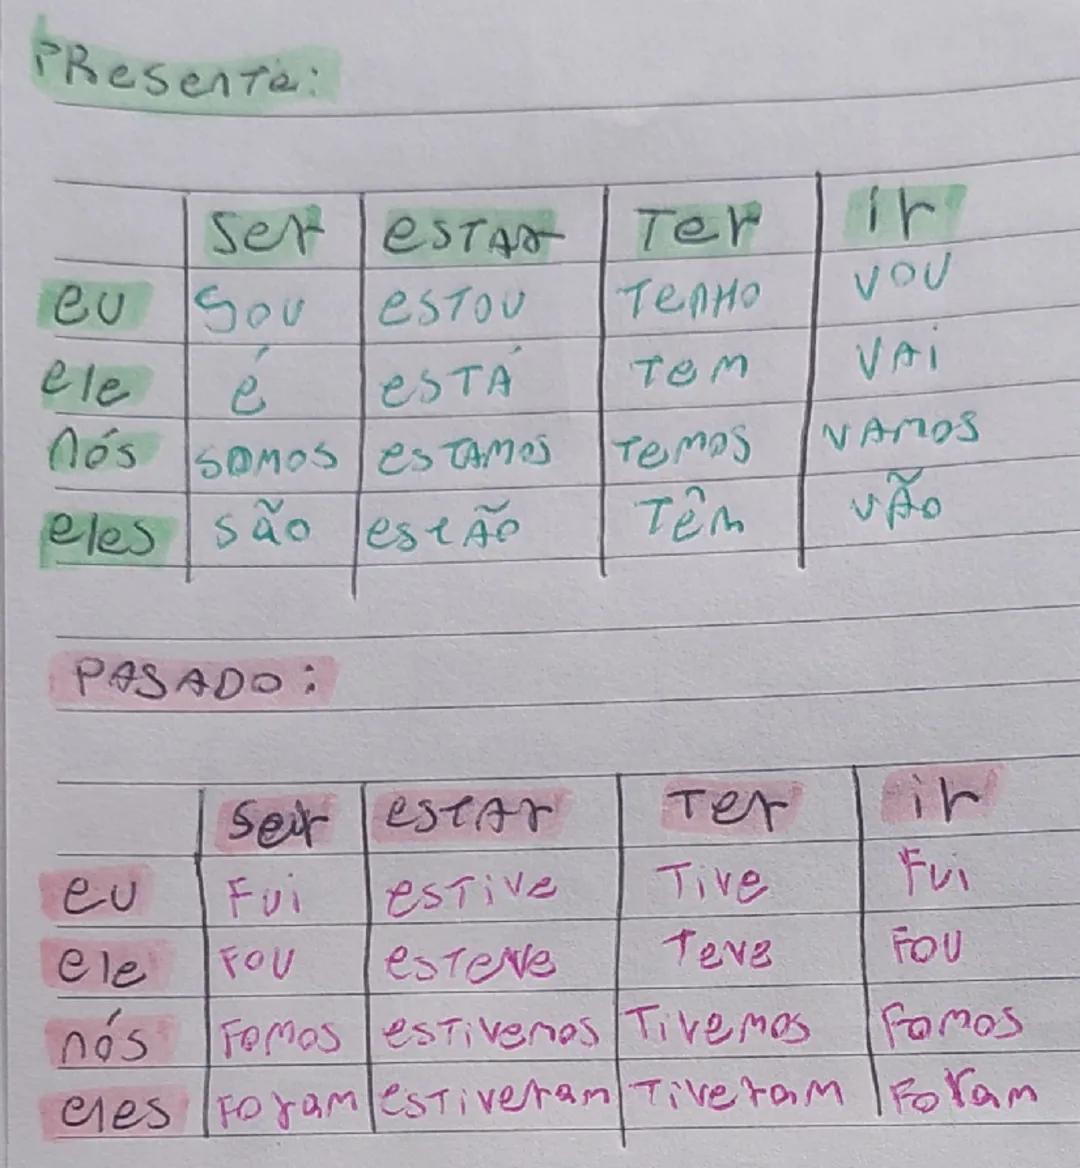 Presente:
ser estar ter ir
eu sou estou tenho vou
ele é está tem vai
nós somos estamos temos vamos
eles são estão têm vão
PASADO:
ser estar ter ir
eu Fui estive Tive Fui
ele FOU esteve Teve FOU
nós Fomos estivemos Tivemos Fomos
eles Foram estiveram Tiveram Foram